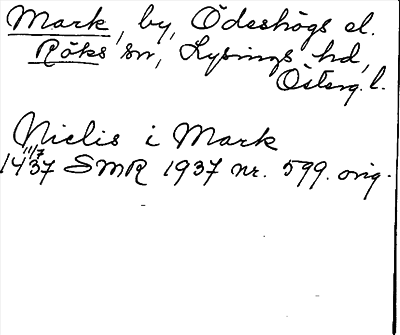 Mark, by, Ödeshögs el.
Röks sn, Lysings hd,
Österg. l.
Nielis i Mark
11/7
1437 SMR 1937 nr. 599. orig.